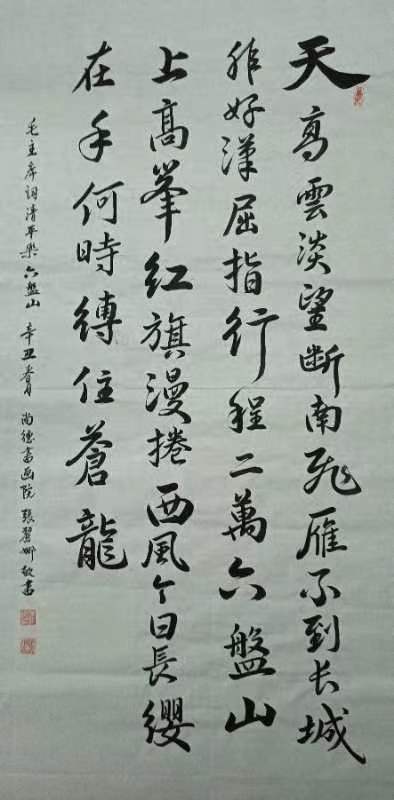 天高雲淡望断南飛雁不到长城
非好漢屈指行程二萬六盤山
上高峯红旗漫捲西風今日長纓
在手何時缚住蒼龍
毛主席词清平樂六盤山辛丑春月尚德書画院張麗卿敬書